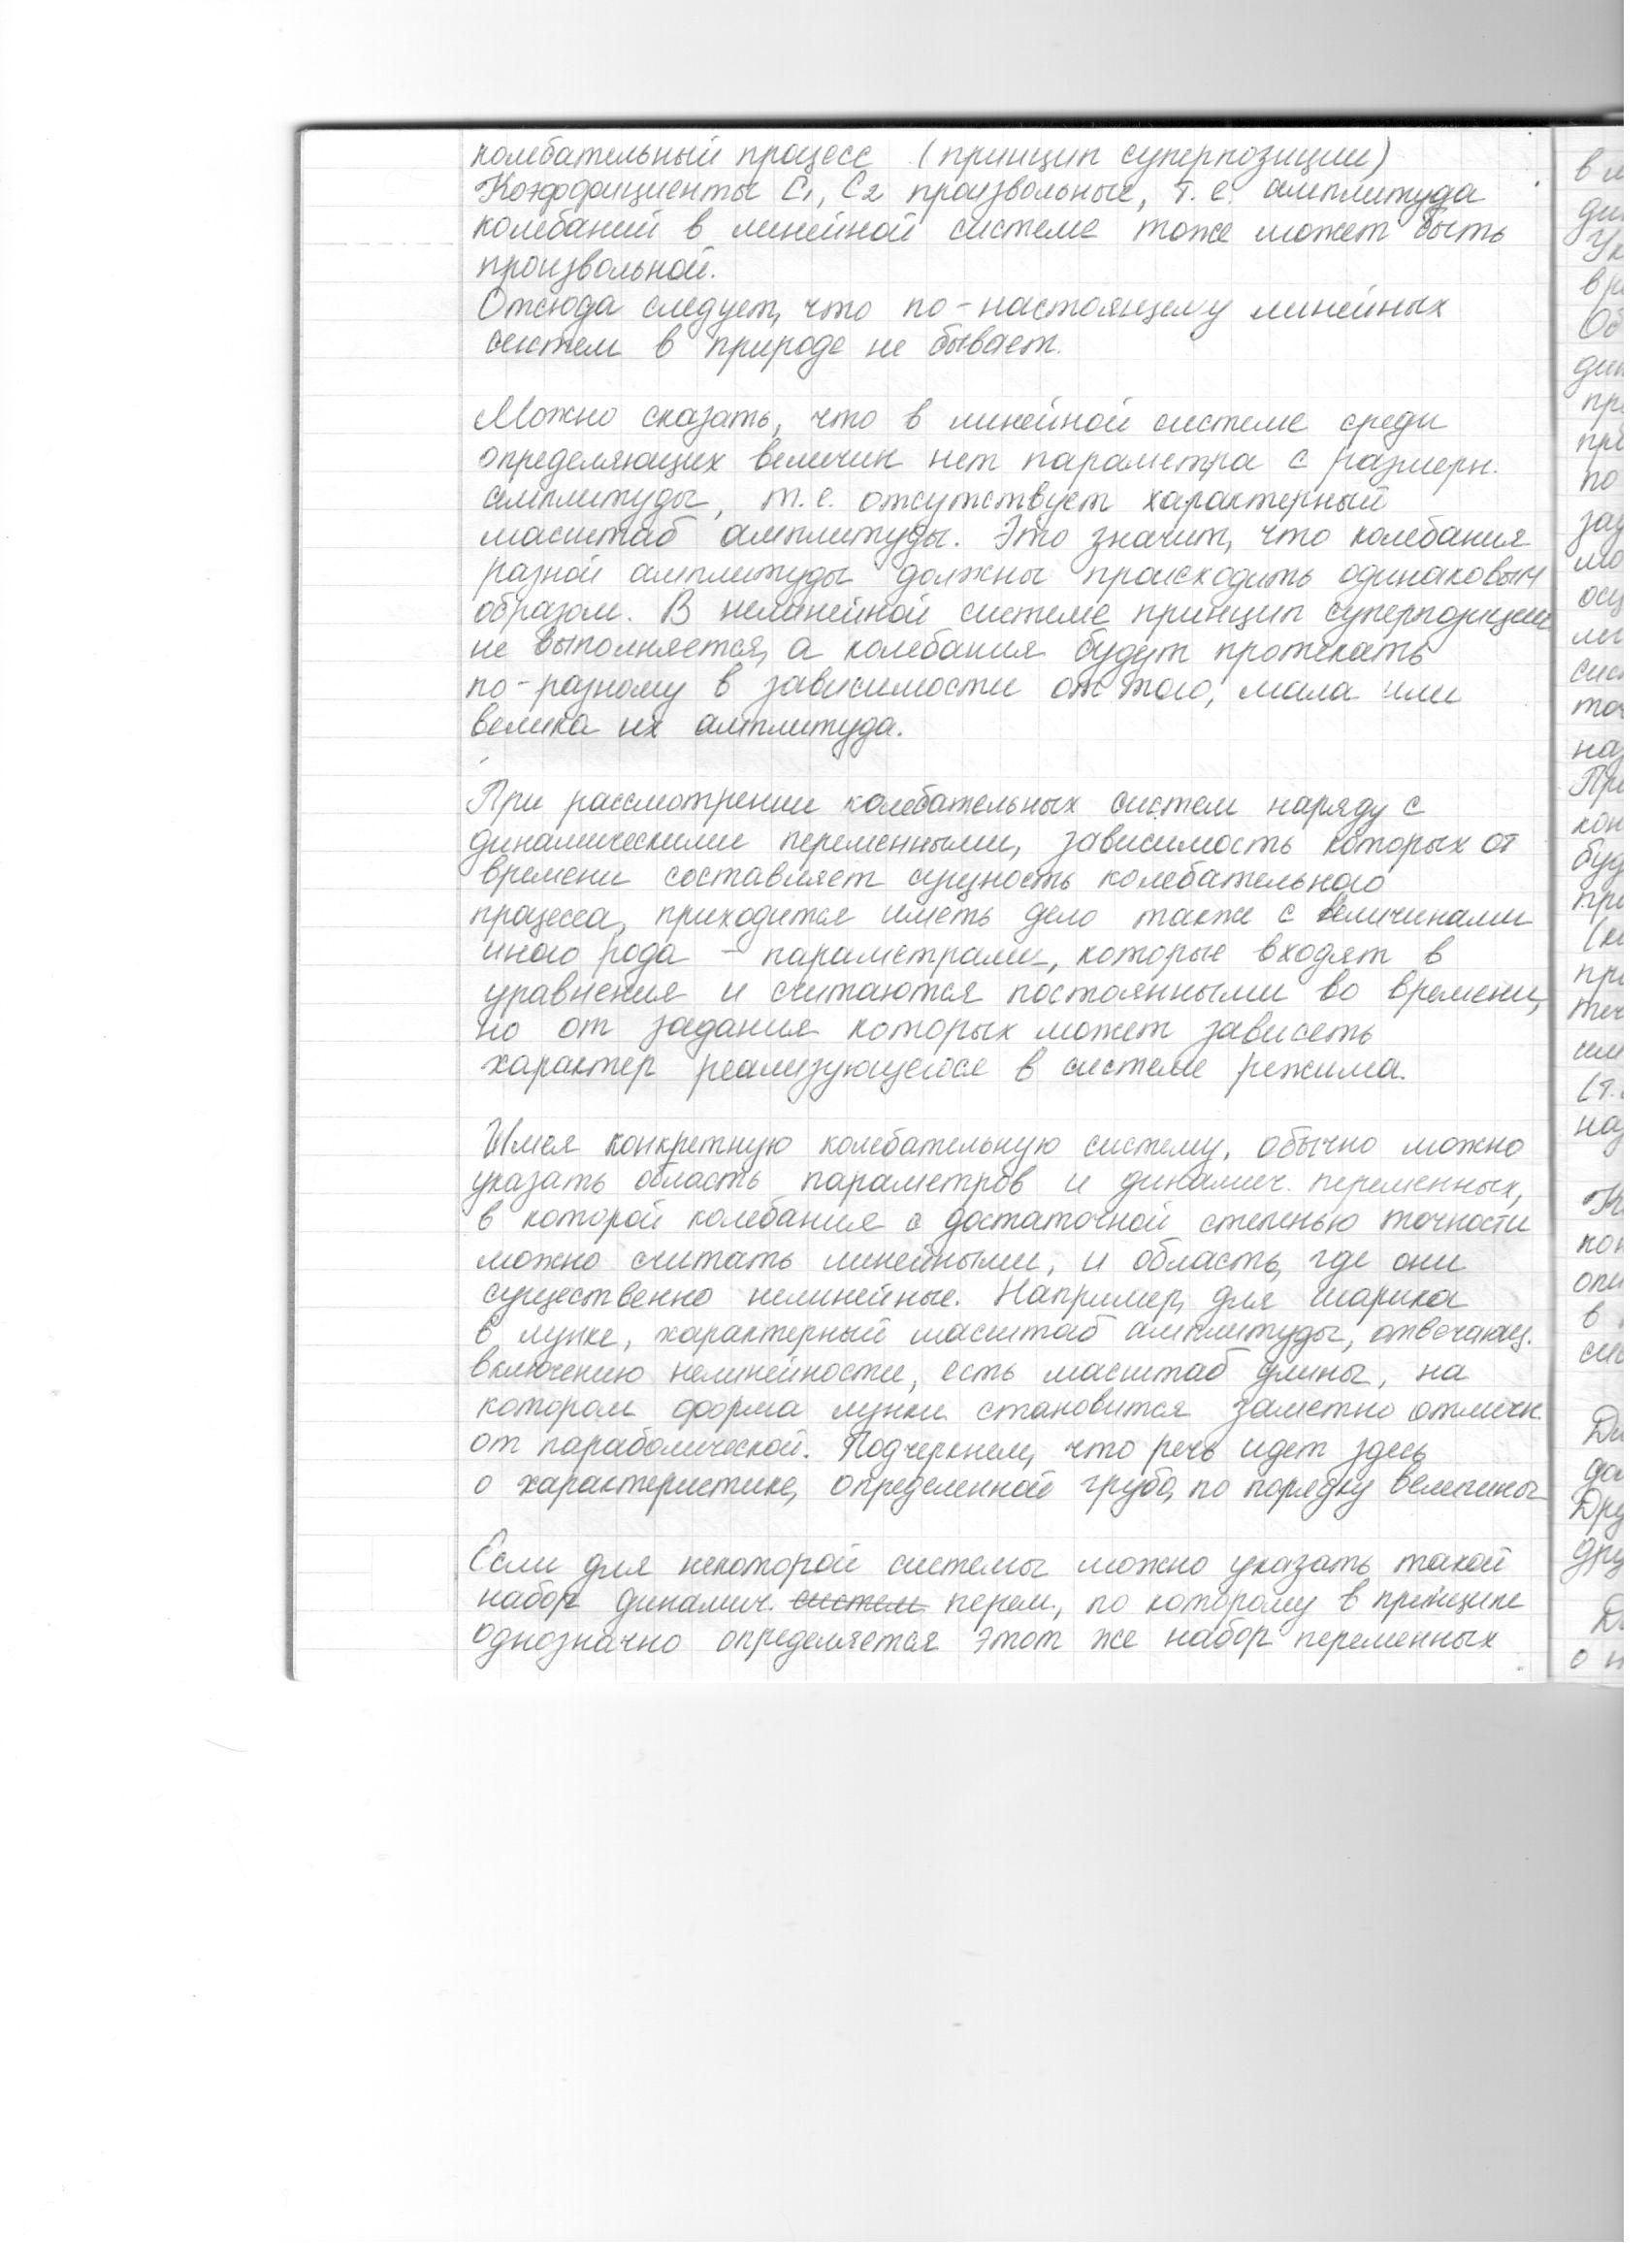 колебательный процесс (принцип суперпозиции)
Коэффициенты C1, C2 произвольные, т.е. амплитуда
колебаний в линейной системе тоже может быть
произвольной.
Отсюда следует, что по-настоящему линейных
систем в природе не бывает.
Можно сказать, что в линейной системе среди
определяющих величин нет параметра с размерн.
амплитуды, т.е. отсутствует характерный
масштаб амплитуды. Это значит, что колебания
разной амплитуды должны происходить одинаковым
образом. В нелинейной системе принцип суперпозиции
не выполняется, а колебания будут протекать
по-разному в зависимости от того, мала или
велика их амплитуда.
При рассмотрении колебательных систем наряду с
динамическими переменными, зависимость которых от
времени составляет сущность колебательного
процесса, приходится иметь дело также с величинами
иного рода - параметрами, которые входят в
уравнения и считаются постоянными во времени,
но от задания которых может зависеть
характер реализующегося в системе режима.
Имея конкретную колебательную систему, обычно можно
указать область параметров и динамич. переменных,
в которой колебания с достаточной степенью точности
можно считать линейными, и область, где они
существенно нелинейные. Например, для шарика
в лунке, характерный масштаб амплитуды, отвечающ.
включению нелинейности, есть масштаб длины, на
котором форма лунки становится заметно отличн.
от параболической. Подчеркнем, что речь идет здесь
о характеристике, определенной грубо, по порядку величины
Если для некоторой системы можно указать такой
набор динамич. систем перем., по которому в принципе
однозначно определяется этот же набор переменных